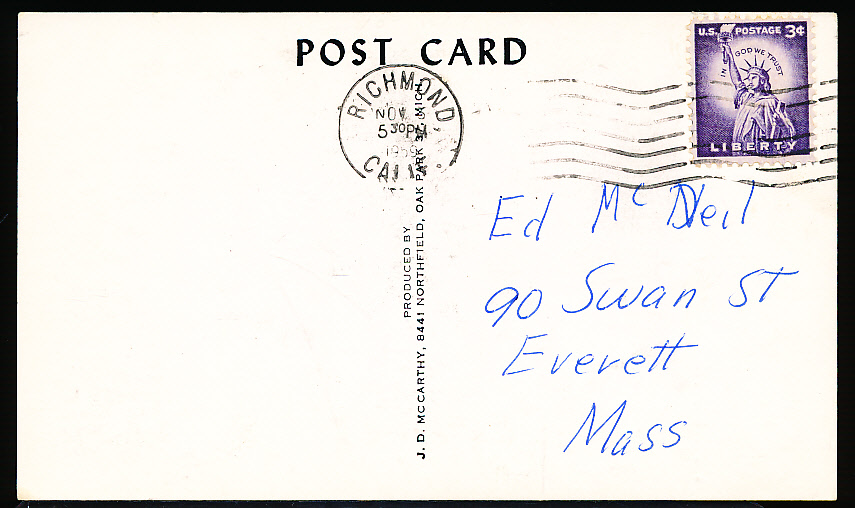 POST CARD
U.S. POSTAGE 3¢
IN GOD WE TRUST
LIBERTY
RICHMOND
NOV
5 30 PM
1959
CALIF.
PRODUCED BY
J. D. MCCARTHY, 8441 NORTHFIELD, OAK PARK 37, MICH.
Ed Mc Neil
90 Swan St
Everett
Mass